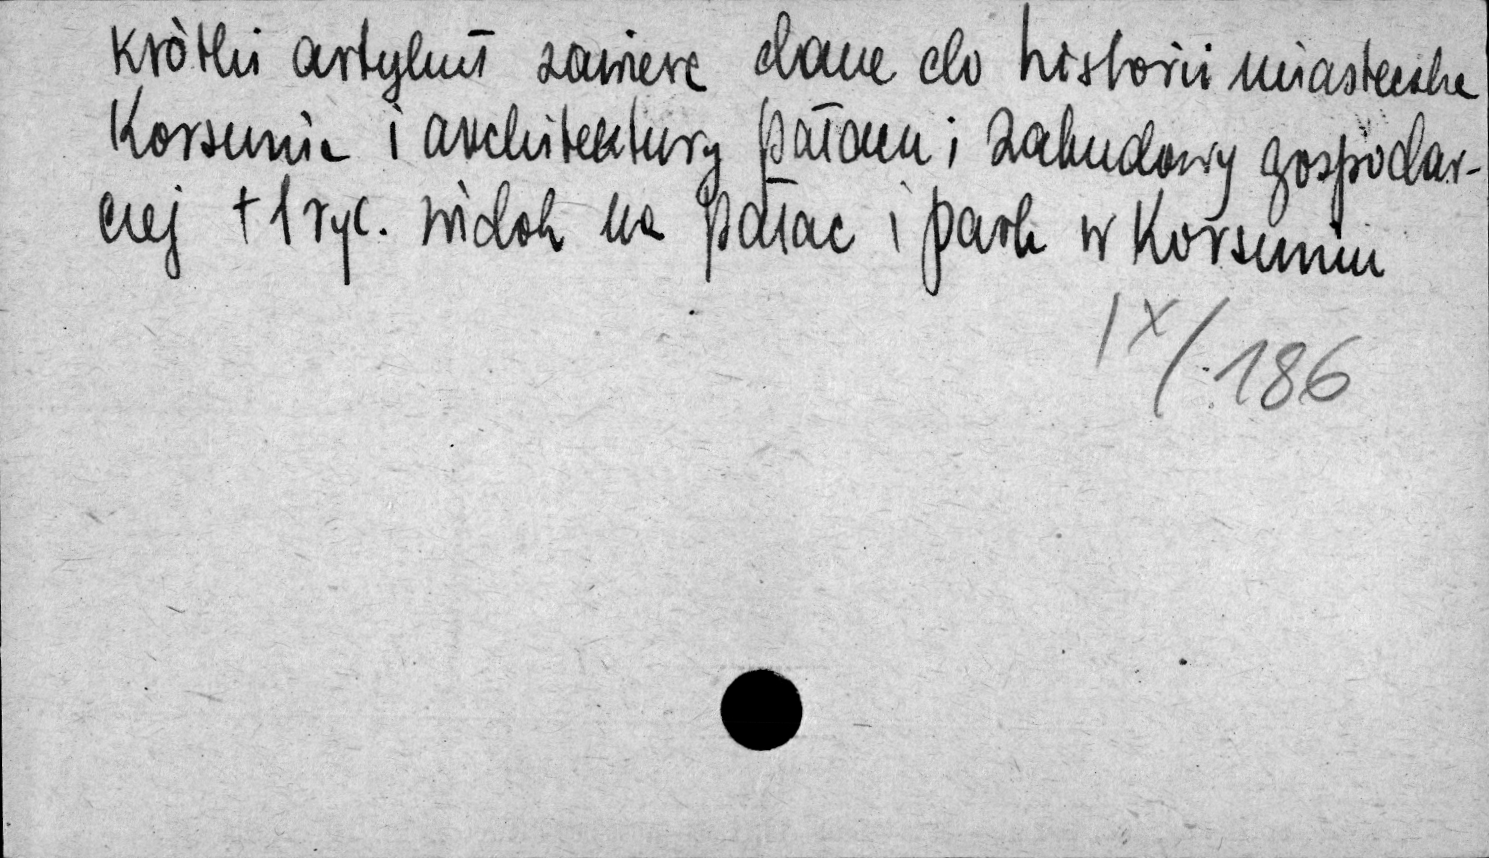 Krótki artykuł zawiera dane do historii miasteczka
Korsunia i architektury pałacu i zabudowy gospodar-
czej + 1 ryc. widok na pałac i park w Korsuniu
IX/186